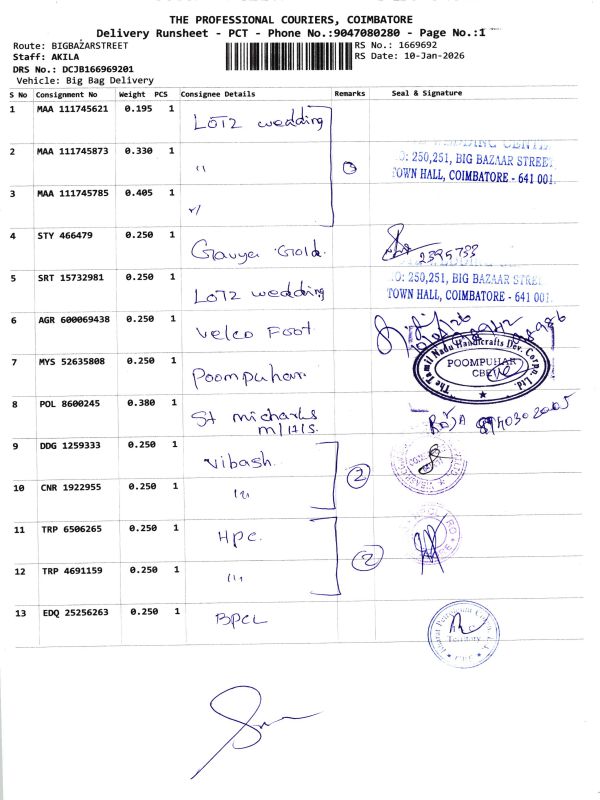 THE PROFESSIONAL COURIERS, COIMBATORE
Delivery Runsheet - PCT - Phone No.:9047080280 - Page No.:1
Route: BIGBAZARSTREET
RS No.: 1669692
Staff: AKILA
RS Date: 10-Jan-2026
DRS No.: DCJB166969201
Vehicle: Big Bag Delivery
S No Consignment No Weight PCS Consignee Details Remarks Seal & Signature
1 MAA 111745621 0.195 1 LOT2 wedding
2 MAA 111745873 0.330 1 "
O: 250,251, BIG BAZAAR STREET,
TOWN HALL, COIMBATORE - 641 001.
3 MAA 111745785 0.405 1 "
4 STY 466479 0.250 1 Gavya Gold. 2395733
5 SRT 15732981 0.250 1 LOT2 wedding
O: 250,251, BIG BAZAAR STREE
TOWN HALL, COIMBATORE - 641 001.
6 AGR 600069438 0.250 1 Velco Foot
7 MYS 52635808 0.250 1 Poompuhar
The Tamil Nadu Handicrafts Dev. Corpn. Ltd.
POOMPUHAR
CBE
8 POL 8600245 0.380 1 St michaels
m/H/S.
RAJA
9 DDG 1259333 0.250 1 Vibash. 2
10 CNR 1922955 0.250 1 "
11 TRP 6506265 0.250 1 HPC. 2
12 TRP 4691159 0.250 1 "
13 EDQ 25256263 0.250 1 BPCL
Territory